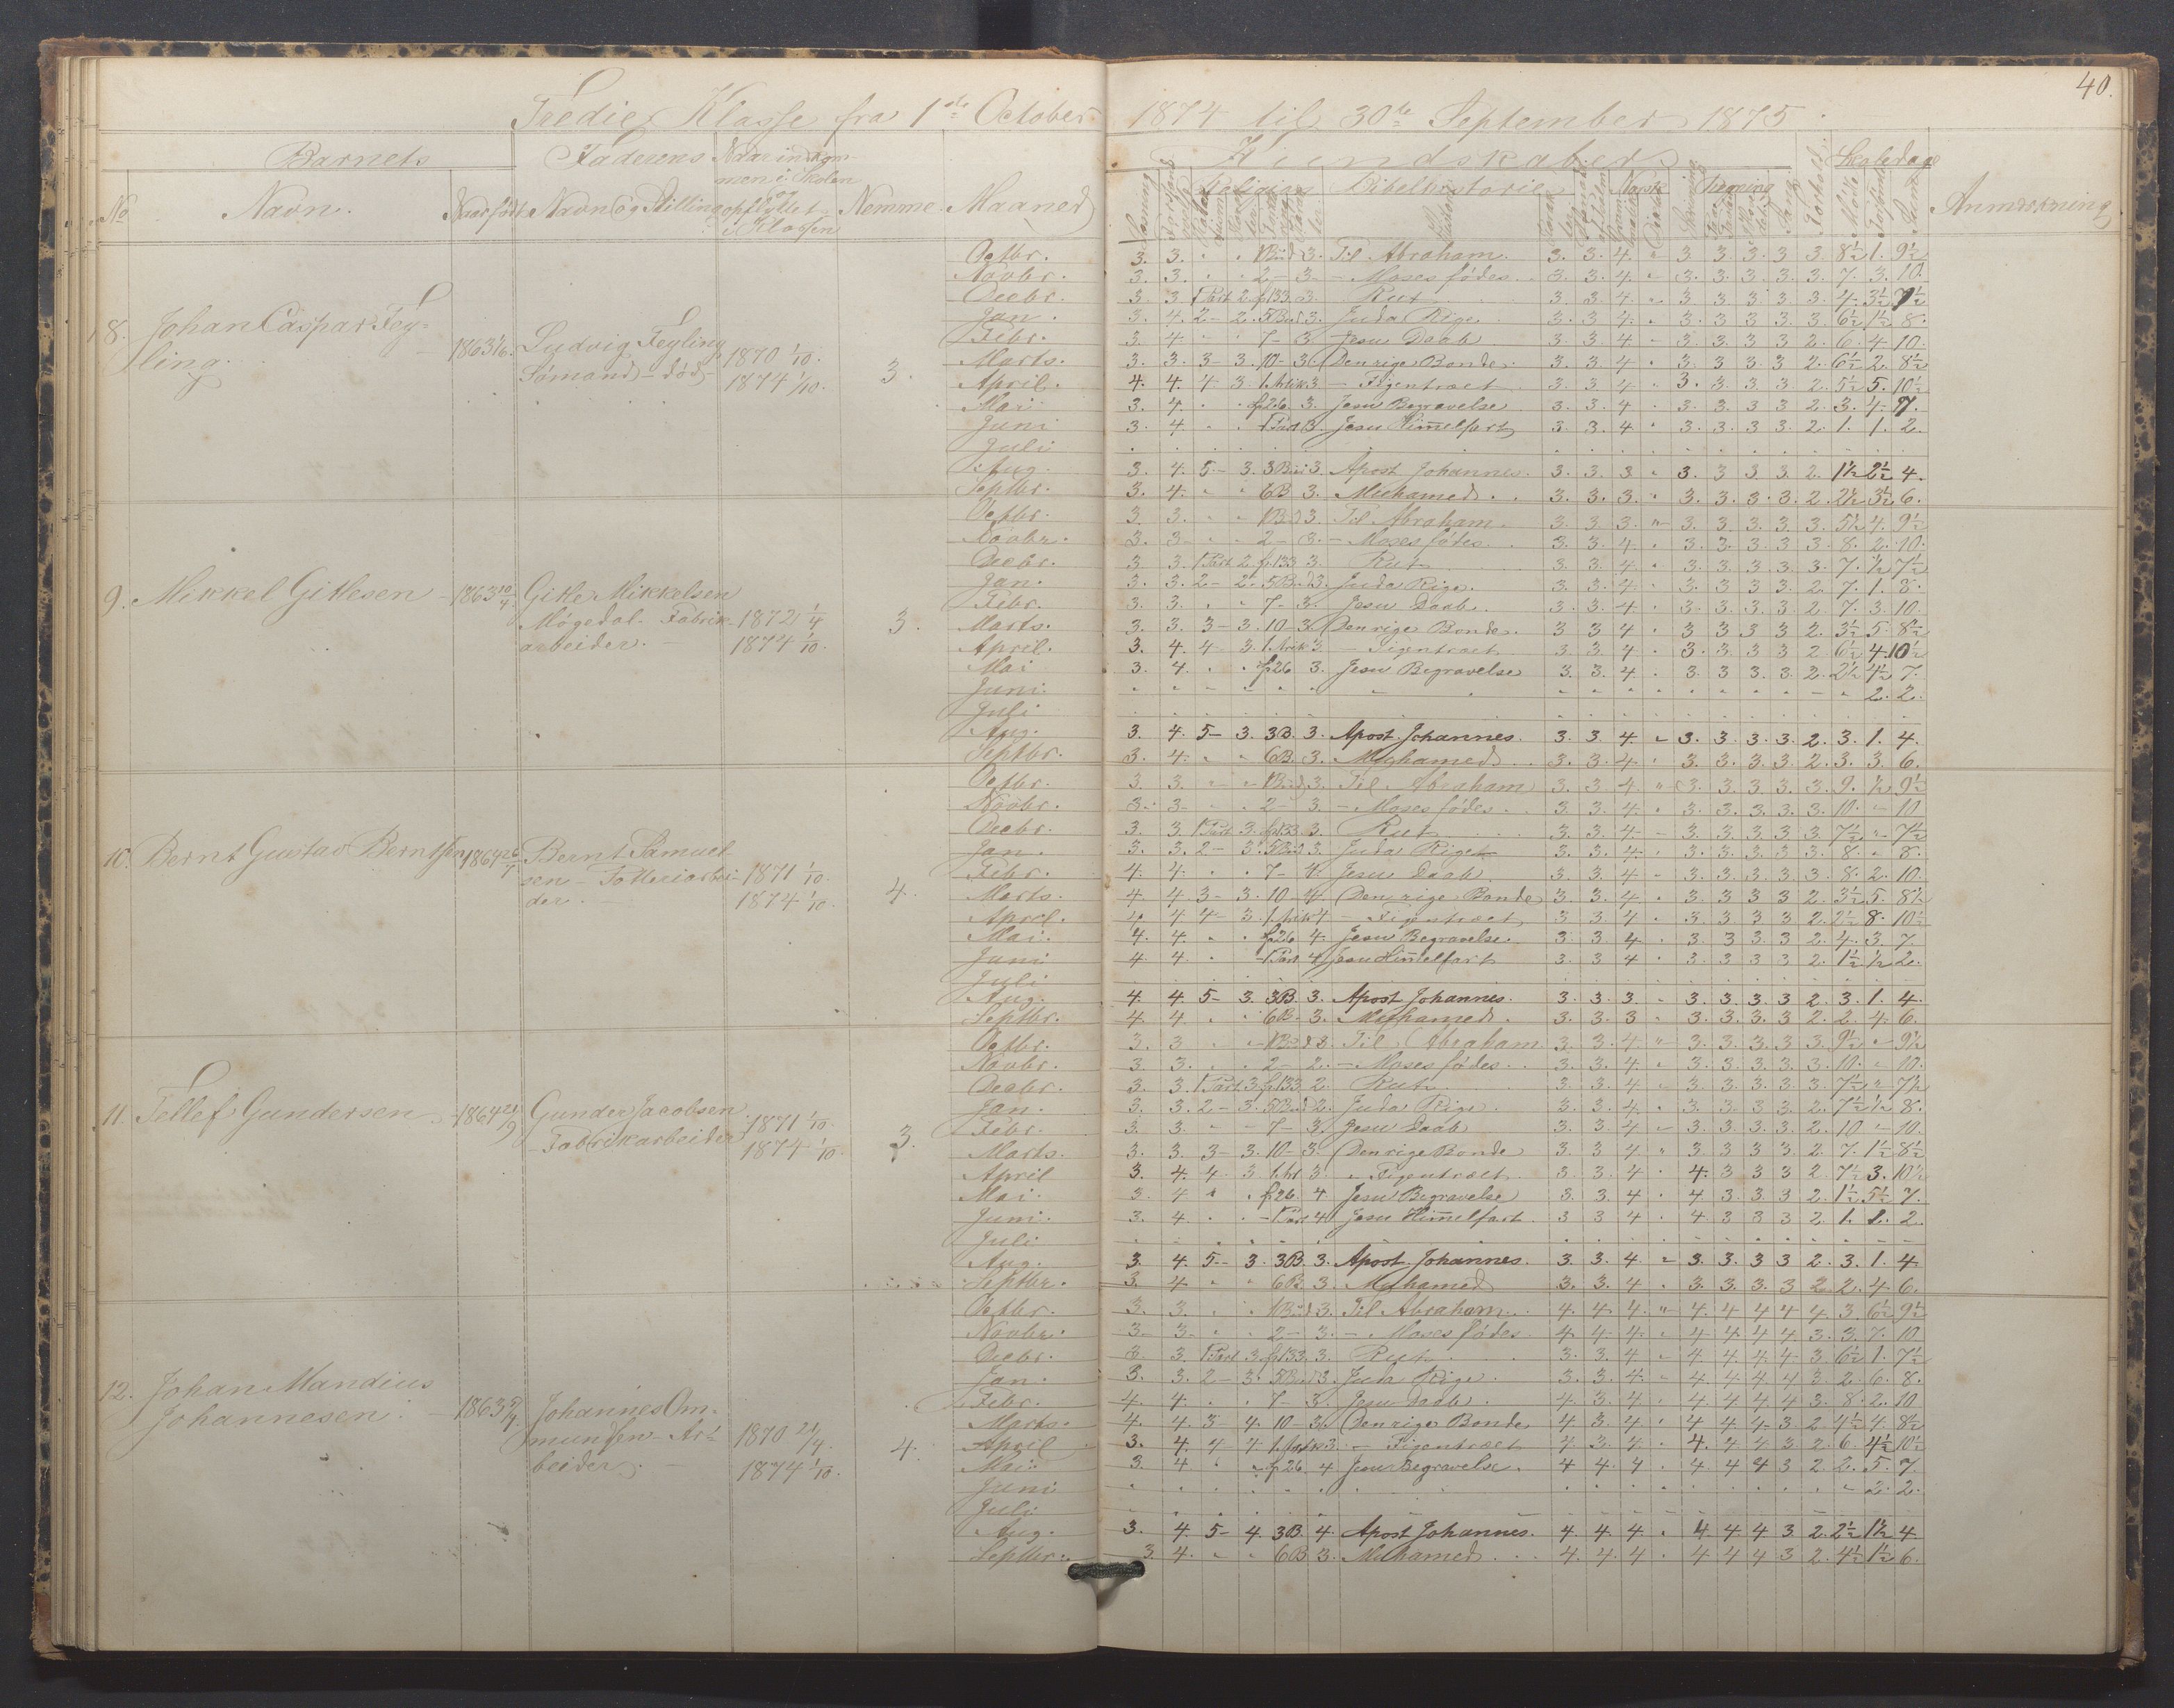 40.
Tredie Klasse fra 1ste October 1874 til 30te September 1875.
Barnets Faderens Naar indkommen i Skolen og opflyttet i Klassen Kundskaber Skoledage
No Navn. Naar født Navn og Stilling Nemme. Maaned Læsning Religion Bibelhistorie Norsk Regning Forhold Mødt Forsømt Sum Anmærkning
8. Johan Caspar Feyling.
Ludvig Feyling
Sømand - død -
1870 1/10.
1874 1/10.
3.
Octbr. 3. 3. 1 Bud 3. Til Abraham. 3. 3. 4. " 3 3 3. 3 3. 8½ 1. 9½
Novbr. 3. 3. 2 - 3. - Moses fødes. 3. 3. 4. - 3. 3. 3. 3. 3. 7. 3. 10.
Decbr. 3. 3. 1 Part 2. p 133. 3. Rut 3. 3. 4. 3 3 3 3. 3. 4. 3½ 7½
Jan. 3. 4. 2 - 2. 5 Bud 3. Juda Rige. 3. 3. 4. 3. 3. 3 3. 3. 6½ 1½ 8.
Febr. 3. 4. 7 - 3. Jesu Daab. 3. 3. 4 - 3. 3. 3. 3 2. 6. 4. 10.
Marts. 3. 3. 3 - 3. 10 - 3. Den rige Bonde. 3. 3. 4. 3. 3. 3. 3 2. 6½ 2. 8½
April. 4. 4. 4 - 3. 1. Artik 3 - Figentræet 3. 3. 4 3. 3. 3. 3 2. 5½ 5. 10½
Mai 3. 4. p 26. 3. Jesu Begravelse 3. 3. 4 3. 3. 3 3 2. 3. 4. 7.
Juni 3. 4. 1 Part 3. Jesu Himmelfart 3. 3. 4 3. 3. 3. 3. 2. 1. 1. 2.
Juli
Aug. 3. 4. 5 - 3. 3 Bud 3. Apost. Johannes. 3. 3. 3. 3. 3 3 3. 2. 1½ 2½ 4.
Septbr. 3. 4. 6 B. 3. Muhamed. 3. 3. 3. 3. 3. 3. 3. 2. 2½ 3½ 6.
9. Mikkel Gitlesen - 1863 10/4.
Gitle Mikkelsen
Møgedal. Fabrik-
arbeider. -
1872 1/4
1874 1/10.
3.
Octbr. 3. 3. 1 Bud 3. Til Abraham. 3. 3. 3. " 3. 3. 3. 3. 3. 5½ 4. 9½
Novbr. 3. 3. 2 - 3. - Moses fødes. 3. 3. 4. 3. 3. 3. 3 3. 8. 2. 10.
Decbr. 3 3. 1 Part. 2. p. 133 3. Rut 3. 3. 4 3. 3. 3. 3. 3. 7. ½ 7½
Jan. 3. 3. 2 - 2. 5 Bud 3. Juda Rige. 3. 3. 4. 3. 3. 3 3. 2. 7. 1. 8.
Febr. 3. 3. 7 - 3. Jesu Daab. 3. 3. 4 - 3. 3. 3. 3. 2. 7. 3. 10.
Marts. 3. 3. 3 - 3. 10 - 3. Den rige Bonde. 3 3 4 3 3 3 3 2. 3½ 5. 8½
April. 3. 4. 4 - 3. 1. Artik 3 - Figentræet 3. 3. 4 3. 3. 3 3 2. 6½ 4. 10½
Mai 3. 4. p 26 3. Jesu Begravelse 3. 3. 4. 3. 3. 3. 3. 2. 2½ 4½ 7.
Juni. 2. 2.
Juli
Aug. 3. 4. 5 - 3. 3 B. 3. Apost. Johannes. 3. 3. 4. - 3. 3. 3. 3. 2. 3. 1. 4.
Septbr. 3. 4. 6 B. 3. Muhamed. 3. 3. 4. 3. 3. 3. 3. 2. 3. 3. 6.
10. Bernt Gustav Berntsen 1864 26/1
Bernt Samuel-
sen - Potteriarbei-
der. -
1871 1/10.
1874 1/10.
4.
Octbr. 3. 3. 1 Bud 3. Til Abraham 3. 3. 4 " 3. 3. 3. 3. 3. 9. ½ 9½
Novbr. 3. 3. 2 - 3. - Moses fødes. 3. 3. 4. 3. 3. 3. 3. 3. 10. - 10
Decbr. 3. 3. 1 Part 3. p 133. 3. Rut 3. 3. 4. - 3. 3. 3. 3 3. 7½ " 7½
Jan. 3. 3. 2 - 3. 5 Bud 3. Juda Riget 3. 3. 4. 3. 3. 3. 3. 3. 8. 8.
Febr. 4. 4. 7 - 4. Jesu Daab. 3. 3. 4 - 3. 3. 3. 3. 3. 8. 2. 10.
Marts. 4. 4 3 - 3. 10 - 4. Den rige Bonde 3. 3. 4. 3. 3 3 3 2. 3½ 5. 8½
April. 4 4 4 - 3. 1. Artik 4 - Figentræet 3. 3 4 3. 3 3 3 2. 2½ 8. 10½
Mai. 4. 4. p 26 4. Jesu Begravelse. 3. 3. 4 3. 3 3. 3 2. 4. 3. 7.
Juni 4 4. 1 Part 4 Jesu Himmelfart 3. 3 4 3. 3 3 3 2. 1½ ½ 2.
Juli
Aug. 4. 4. 5 - 3. 3 B. 3. Apost. Johannes. 3. 3. 3. 3. 3. 3. 3 2. 3. 1. 4.
Septbr. 4. 4. 6 B. 3. Muhamed. 3. 3. 3 3. 3. 3. 3 2. 2. 4. 6.
11. Tellef Gundersen 1864 21/9
Gunder Jacobsen
- Fabrikarbeider
1871 1/10.
1874 1/10.
3.
Octbr. 3. 3 1 Bud 3. Til Abraham. 3. 3. 4 " 3. 3. 3. 3. 3. 9½ - 9½
Novbr. 3. 3. 2 - 2. - Moses fødes. 3. 3. 4. 3. 3. 3. 3. 3. 10. - 10.
Decbr. 3. 3. 1 Part. 3. p 133 2. Rut 3. 3. 4 3. 3. 3. 3. 3. 7½ " 7½
Jan. 3. 3. 2 - 3. 5 Bud 2. Juda Rige. 3. 3. 4. 3. 3. 3. 3. 2. 7½ ½ 8.
Febr. 3. 3. 7 - 3. Jesu Daab 3. 3. 4 - 3. 3. 3. 3. 2. 10. - 10.
Marts. 3. 3. 3 - 3. 10 - 3. Den rige Bonde 3. 3 4 " 3 3 3 3. 2. 7. 1½ 8½
April 3. 4. 4 - 3. 1. Art 3. - Figentræet 3. 3 4 4. 3 3 3 2. 7½ 3. 10½
Mai. 3. 4 p 26. 4. Jesu Begravelse 3. 3. 4 4 3. 3. 3 2. 1½ 5½ 7.
Juni. 3. 4. 1 Part 4 Jesu Himmelfart 3 3 4 4 3 3 3 2. 1. 1. 2.
Juli
Aug. 3. 4. 5 - 3. 3 B. 3. Apost. Johannes. 3. 3. 4 - 3. 3. 3 3 2. 3. 1. 4
Septbr. 3. 4 6 B. 3. Muhamed 3. 3. 4. 3. 3. 3. 3 2. 2. 4. 6.
12. Johan Mandius
Johannesen. -
Johannes Om-
mundsen - Ar-
beider. -
1870 21/4.
1874 1/10.
4.
Octbr. 3. 3. 1 Bud 3. Til Abraham. 4. 4. 4. " 4. 4. 4 4 4. 3. 6½ 9½
Novbr. 3. 3. 2 - 3. - Moses fødes. 4. 4. 4. 4. 4. 4. 4 3. 3. 7. 10
Decbr. 3. 3. 1 Part 3. p 133. 3. Rut. 3. 3. 4 4. 4. 4. 4. 3. 6½ 1. 7½
Jan. 3. 3. 2 - 3. 5 Bud 3. Juda Rige. 3. 3. 4. 4. 4. 4. 4 3. 2. 6. 8.
Febr. 4. 4. 7 - 3. Jesu Daab. 4. 3. 4. 4. 4. 4. 4 3. 8. 2. 10
Marts. 4. 4. 3 - 4. 10 - 3. Den rige Bonde 4. 3. 4. 4 4. 4. 3. 2. 4½ 4. 8½
April 3. 4. 4 - 4. 1. Artik 3. - Figentræet 4 3. 4. 4. 4 4 3. 2. 6. 4½ 10½
Mai. 3. 4 p 26. 4 Jesu Begravelse. 4 4. 4 4. 4 4 3 2. 2. 5. 7.
Juni 2. 2.
Juli
Aug. 3. 4. 5 - 4. 3 B. 4. Apost. Johannes. 4. 4. 4. 4. 4. 4 3 2. 2½ 1½ 4.
Septbr. 3. 4. 6 B. 3. Muhamed 4. 4. 4. 4. 4 4 3 2. 4½ 1½ 6.